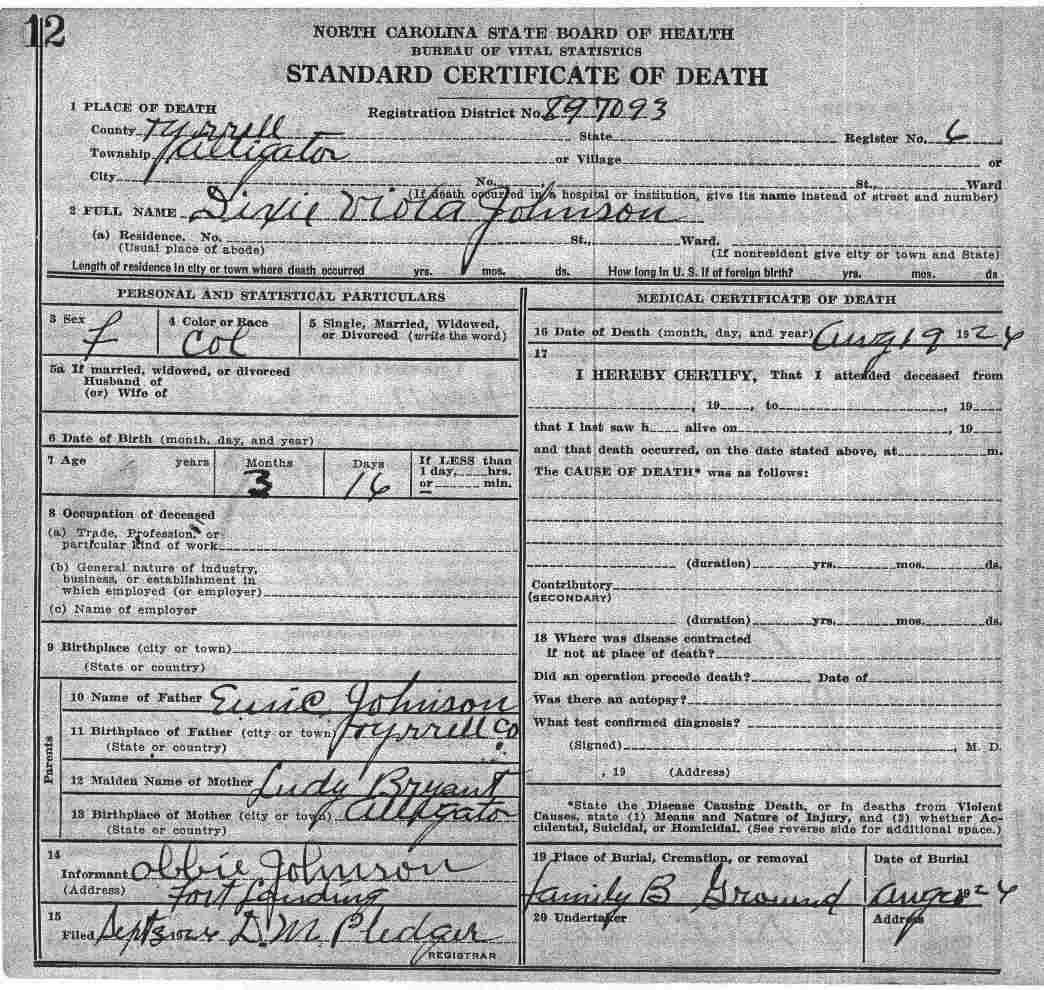 12
NORTH CAROLINA STATE BOARD OF HEALTH
BUREAU OF VITAL STATISTICS
STANDARD CERTIFICATE OF DEATH
1 PLACE OF DEATH
Registration District No. 897093
County Tyrrell State Register No. 6
Township Alligator or Village or
City No. St., Ward
(If death occurred in a hospital or institution, give its name instead of street and number)
2 FULL NAME Dixie Viola Johnson
(a) Residence. No. St., Ward.
(Usual place of abode) (If nonresident give city or town and State)
Length of residence in city or town where death occurred yrs. mos. ds. How long in U. S. if of foreign birth? yrs. mos. ds
PERSONAL AND STATISTICAL PARTICULARS
3 Sex 4 Color or Race 5 Single, Married, Widowed,
or Divorced (write the word)
f Col
5a If married, widowed, or divorced
Husband of
(or) Wife of
6 Date of Birth (month, day, and year)
7 Age years Months Days If LESS than
1 day, hrs.
or min.
3 16
8 Occupation of deceased
(a) Trade, Profession, or
particular kind of work
(b) General nature of industry,
business, or establishment in
which employed (or employer)
(c) Name of employer
9 Birthplace (city or town)
(State or country)
Parents
10 Name of Father Johnson
11 Birthplace of Father (city or town) Tyrrell Co
(State or country)
12 Maiden Name of Mother Ludy Bryant
13 Birthplace of Mother (city or town) Alligator
(State or country)
14
Informant Obbie Johnson
(Address) Fort Landing
15
Filed Sept 3 1924 D. M. Pledger
REGISTRAR
MEDICAL CERTIFICATE OF DEATH
16 Date of Death (month, day, and year) Aug 19 1924
17
I HEREBY CERTIFY, That I attended deceased from
, 19 , to , 19
that I last saw h alive on , 19
and that death occurred, on the date stated above, at m.
The CAUSE OF DEATH* was as follows:
(duration) yrs. mos. ds.
Contributory
(SECONDARY)
(duration) yrs. mos. ds.
18 Where was disease contracted
if not at place of death?
Did an operation precede death? Date of
Was there an autopsy?
What test confirmed diagnosis?
(Signed) , M. D.
, 19 (Address)
*State the Disease Causing Death, or in deaths from Violent
Causes, state (1) Means and Nature of Injury, and (2) whether Ac-
cidental, Suicidal, or Homicidal. (See reverse side for additional space.)
19 Place of Burial, Cremation, or removal Date of Burial
Family B Ground Aug 1924
20 Undertaker Address